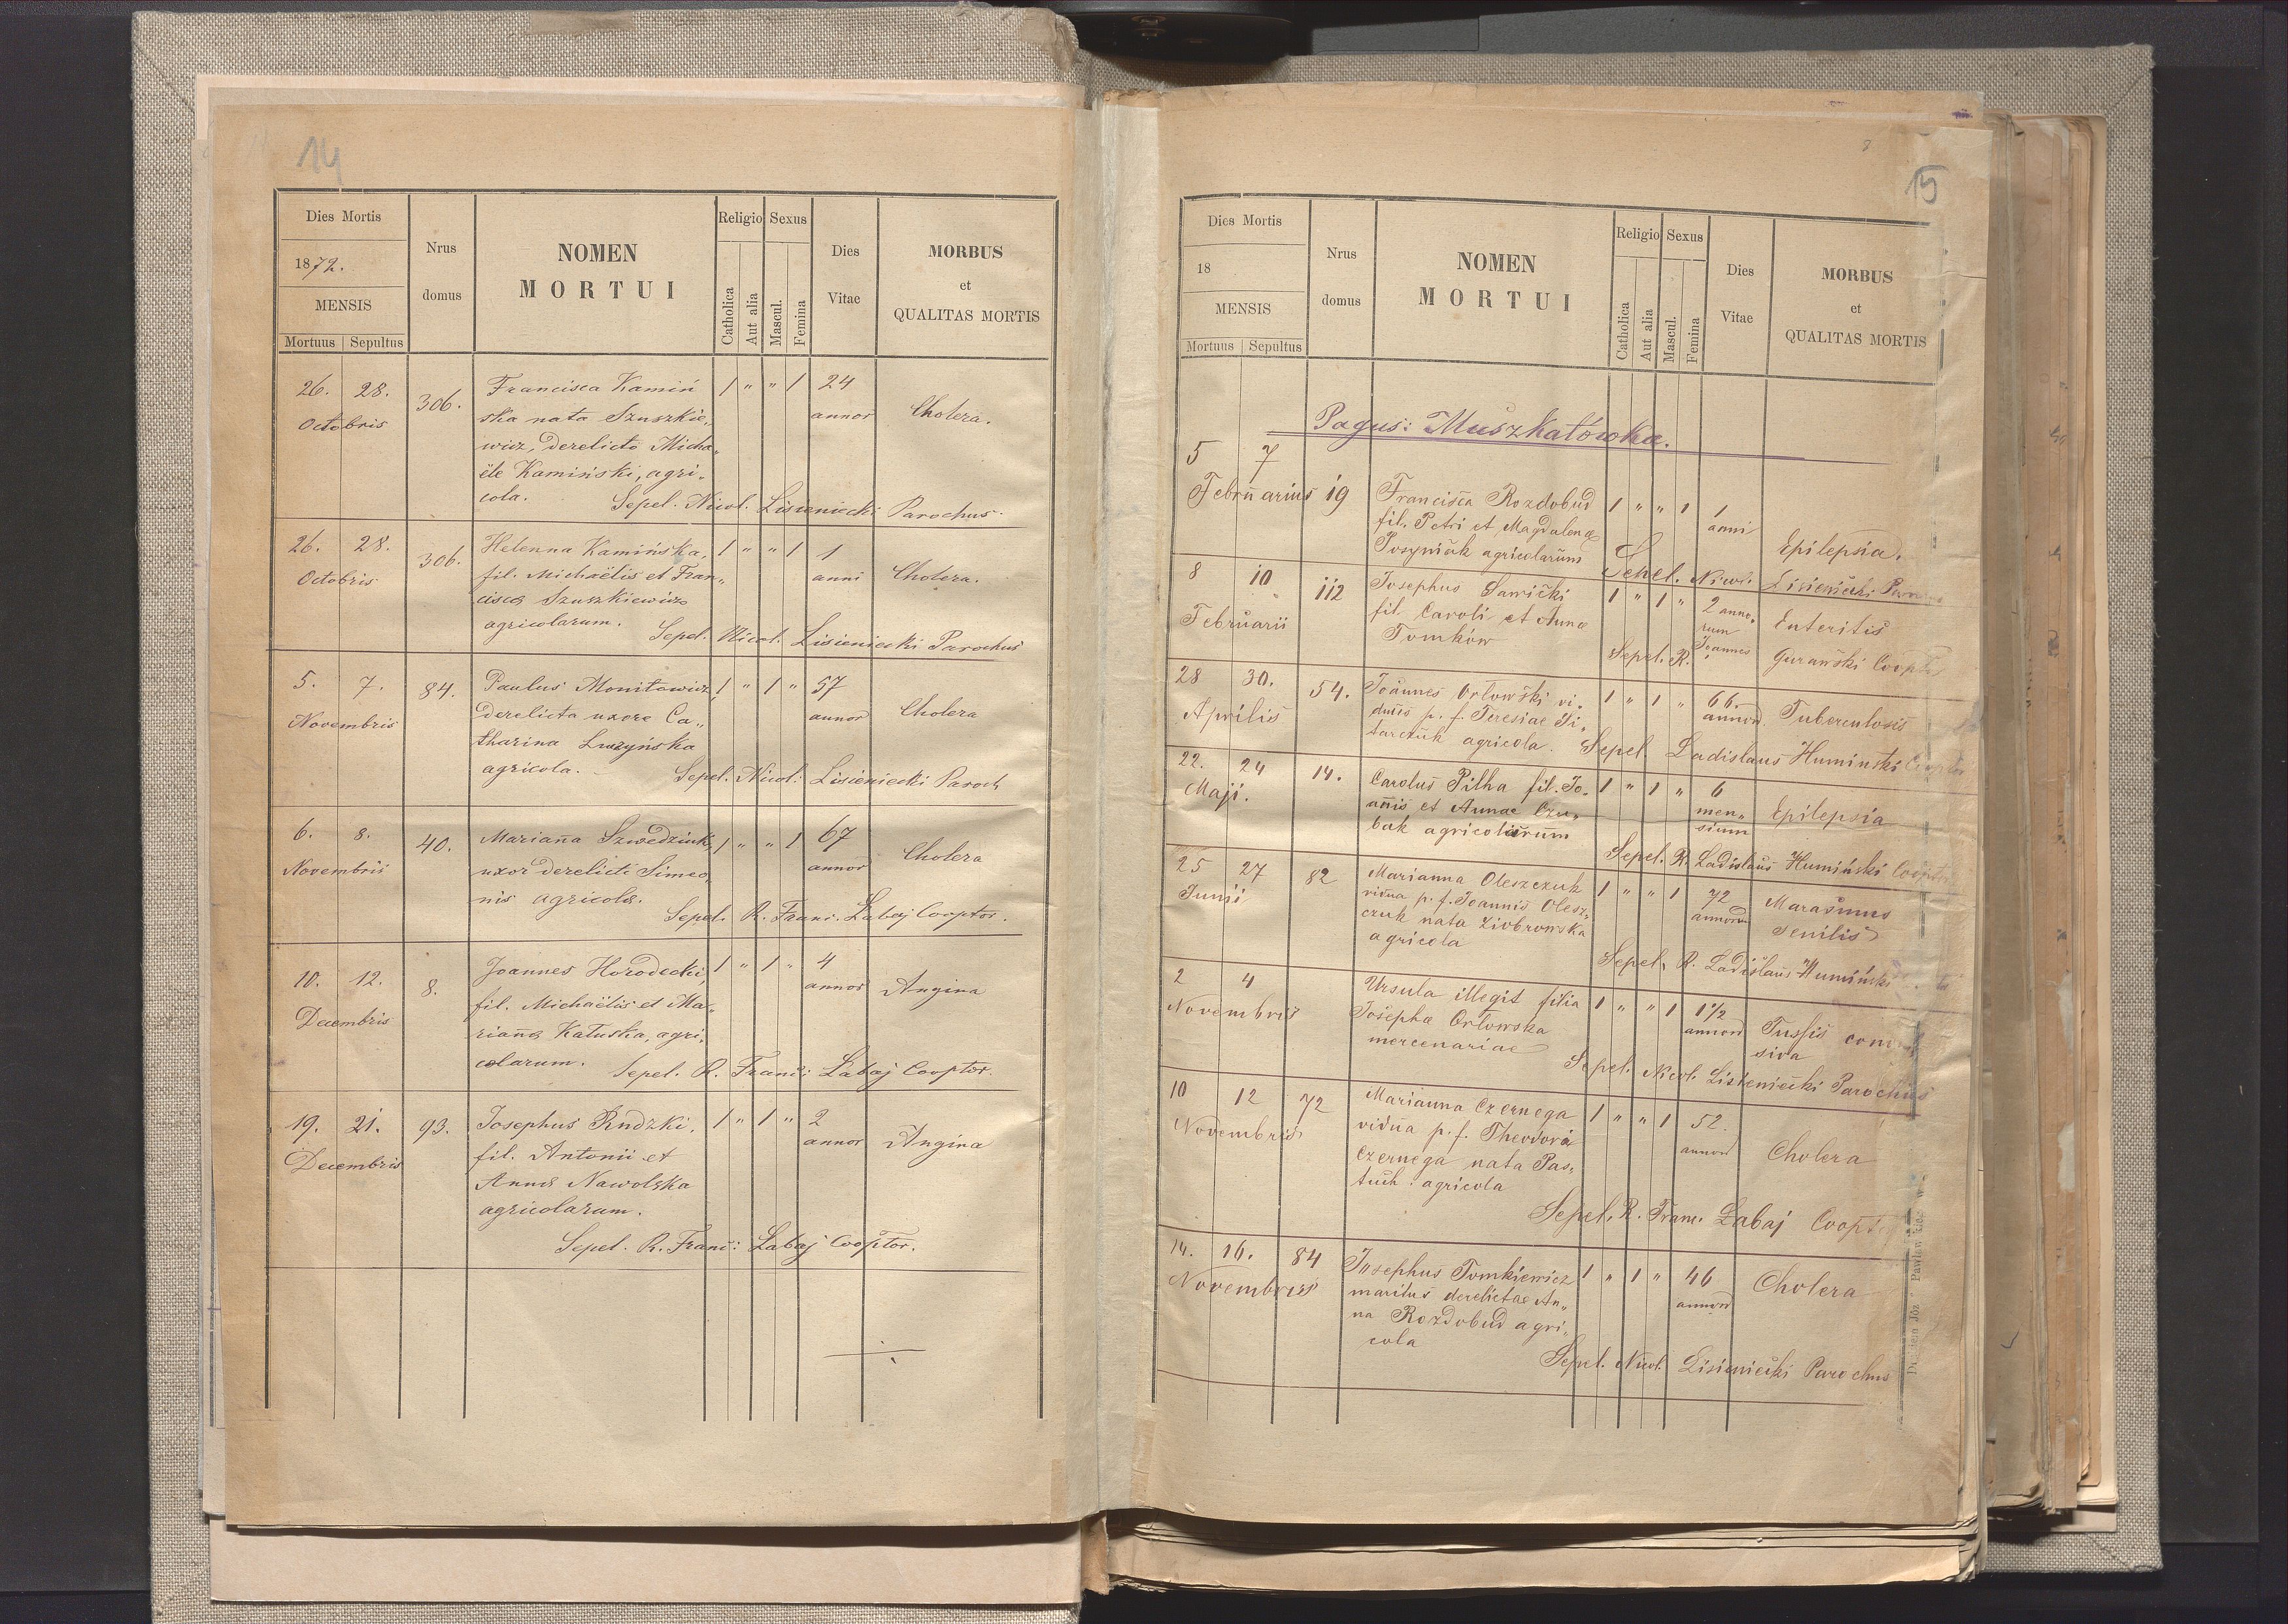 14
Dies Mortis
1872.
MENSIS
Mortuus Sepultus
Nrus
domus
NOMEN
MORTUI
Religio
Catholica
Aut alia
Sexus
Mascul.
Femina
Dies
Vitae
MORBUS
et
QUALITAS MORTIS
26. 28. 306. Francisca Kamiń 1 " " 1 24
Octobris ska nata Szuszkie„ annor Cholera.
wicz, derelicto Micha„
ële Kamiński, agri„
cola. Sepel. Nicol. Lisieniecki Parochus.
26. 28. 306. Helenna Kamińska, 1 " " 1 1
Octobris fil. Michaëlis et Fran„ anni Cholera.
cisca Szuszkiewicz
agricolarum. Sepel. Nicol. Lisieniecki Parochus
5. 7. 84. Paulus Monitowicz, 1 " 1 " 57
Novembris derelicta uxore Ca„ annor Cholera
tharina Luczyńska
agricola. Sepel. Nicol: Lisieniecki Paroch
6. 8. 40. Marianna Szwedziuk, 1 " " 1 67
Novembris uxor derelicti Simeo„ annor Cholera
nis agricola.
Sepel. R. Franc. Łabaj Cooptor.
10. 12. 8. Joannes Horodecki, 1 " 1 " 4
Decembris fil. Michaëlis et Ma„ annor Angina
rianna Katuska, agri„
colarum. Sepel. R. Franc: Łabaj Cooptor.
19. 21. 93. Josephus Rudzki, 1 " 1 " 2
Decembris fil. Antonii et annor Angina
Anna Nawolska
agricolarum.
Sepel. R. Franc: Łabaj Cooptor.
15
Dies Mortis
18
MENSIS
Mortuus Sepultus
Nrus
domus
NOMEN
MORTUI
Religio
Catholica
Aut alia
Sexus
Mascul.
Femina
Dies
Vitae
MORBUS
et
QUALITAS MORTIS
Pagus: Muszkatówka.
5 7
Februarius 19 Francisca Rozdobud 1 " " 1 1
fil. Petri et Magdalena anni
agricolarum Epilepsia.
Sepel. Nicol. Lisieniecki
8 10 112 Josephus Sawicki 1 " 1 " 2 anno„
Februarii fil. Caroli et Anna rum Enteritis
Tomków Sepel. R. Joannes Gurański
28 30. 54. Joannes Orłowski vi„ 1 " 1 " 66.
Aprilis duus p. f. Teresiae Ti„ annor Tuberculosis
tarczuk agricola. Sepel. Ladislaus Humiński
22. 24 14. Carolus Pilha fil. Jo„ 1 " 1 " 6
Maji. annis et Annae Czu„ men„ Epilepsia
bak agricolarum sium
Sepel. R. Ladislaus Humiński
25 27 82 Marianna Oleszczuk 1 " " 1 72
Junii vidua p. f. Joannis Olesz„ annor Marasmus
czuk nata Ziobrowska senilis
agricola
Sepel. R. Ladislaus Humiński
2 4 Ursula illegit filia 1 " " 1 1½
Novembris Josepha Orłowska annor Tussis
mercenariae
Sepel. Nicol. Lisieniecki Parochus
10 12 72 Marianna Czernega 1 " " 1 52.
Novembris vidua p. f. Theodora annor Cholera
Czernega nata Pas„
tuch agricola
Sepel. R. Franc. Łabaj
14. 16. 84 Josephus Tomkiewicz 1 " 1 " 46
Novembris maritus derelictae An„ annor Cholera
na Rozdobud agri„
cola
Sepel. Nicol. Lisieniecki Parochus